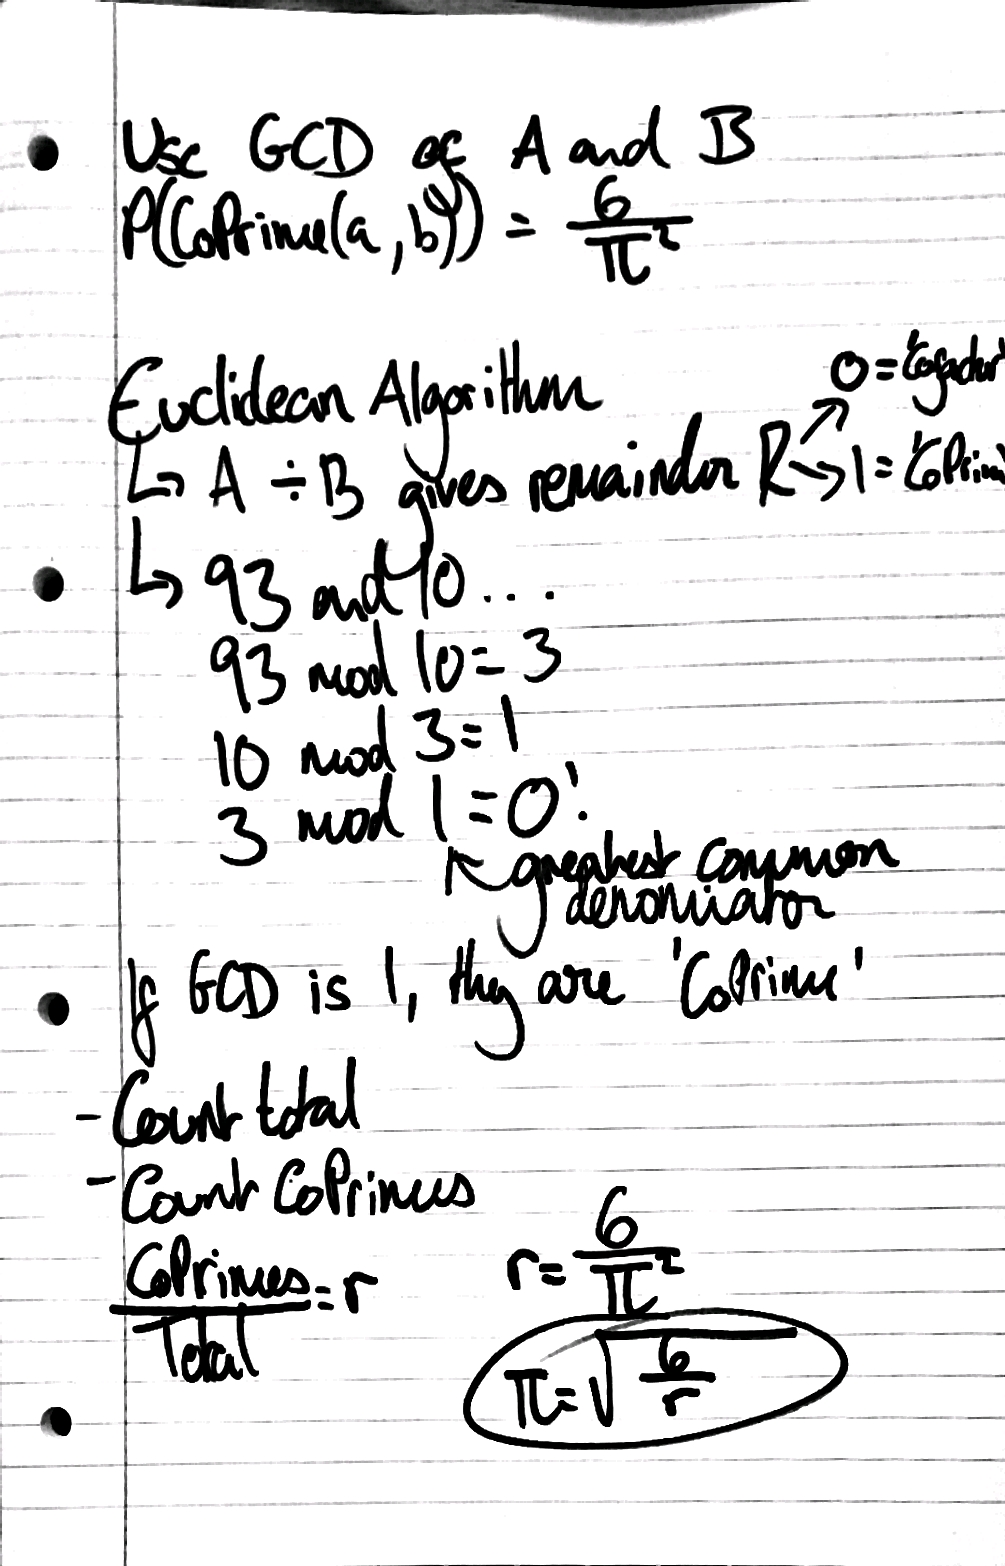 Use GCD of A and B
P(CoPrime(a, b)) = 6/π²
Euclidean Algorithm
0 = 'Cofactor'
↳ A ÷ B gives remainder R → 1 = 'CoPrim
↳ 93 and 10 ...
93 mod 10 = 3
10 mod 3 = 1
3 mod 1 = 0!
↖ greatest common
denominator
If GCD is 1, they are 'CoPrime'
- Count total
- Count CoPrimes
CoPrimes/Total = r
r = 6/π²
π = √(6/r)